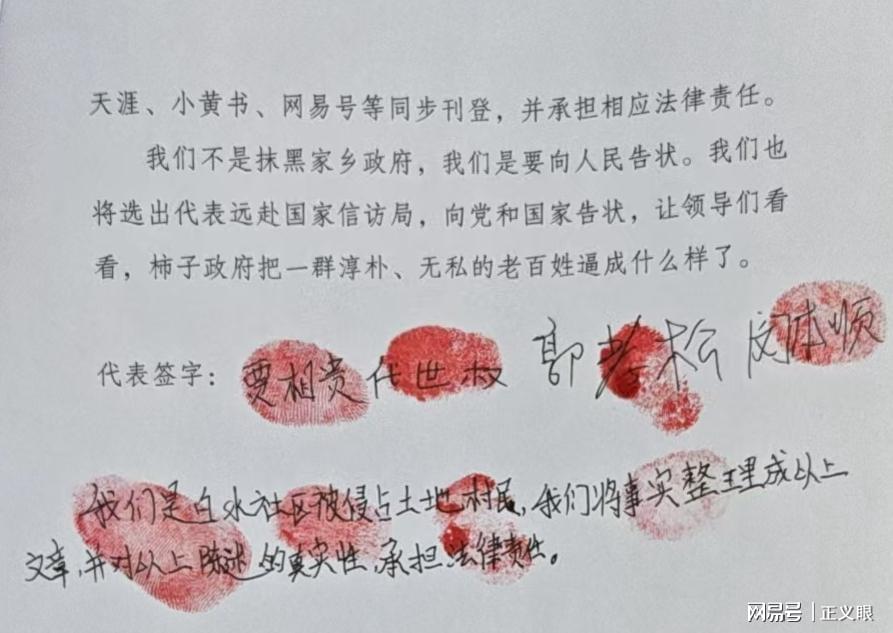 天涯、小黄书、网易号等同步刊登，并承担相应法律责任。
我们不是抹黑家乡政府，我们是要向人民告状。我们也
将选出代表远赴国家信访局，向党和国家告状，让领导们看
看，柿子政府把一群淳朴、无私的老百姓逼成什么样了。
代表签字：贾相贵 代世叔 郭 松
我们是白水社区被侵占土地村民，我们将事实整理成以上
文章，并对以上陈述的真实性，承担法律责任。
网易号 | 正义眼